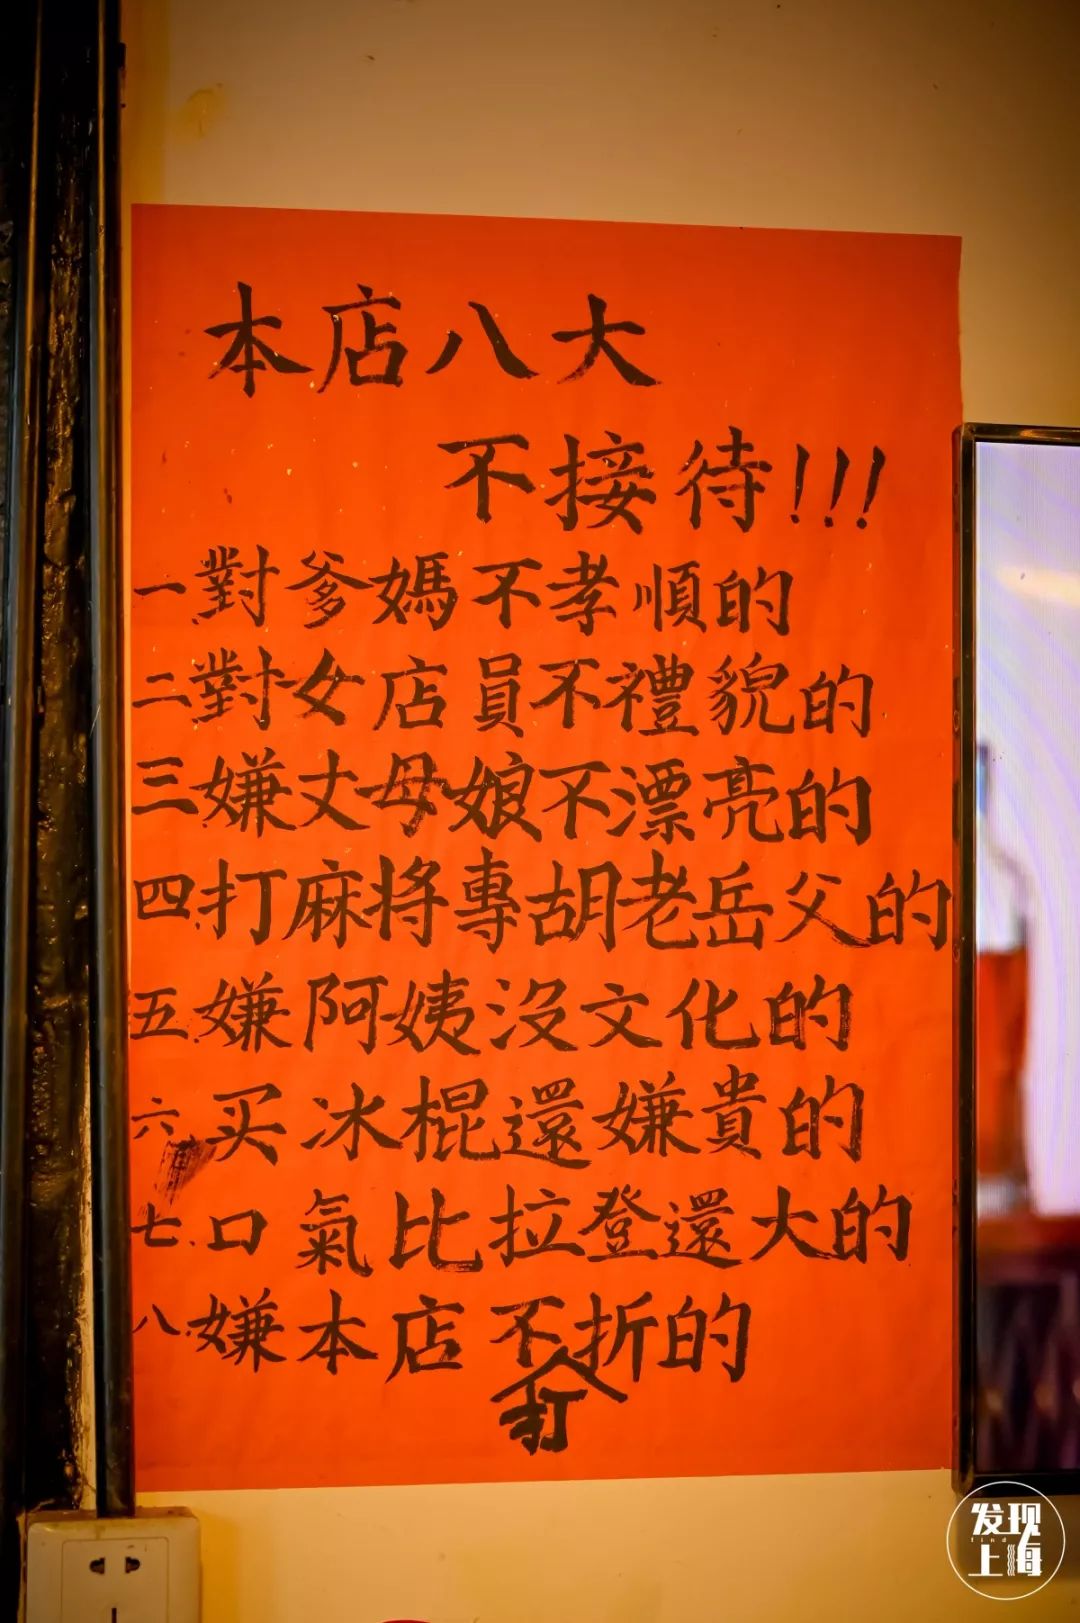 本店八大
不接待!!!
一.對爹媽不孝順的
二.對女店員不禮貌的
三.嫌丈母娘不漂亮的
四.打麻將專胡老岳父的
五.嫌阿姨沒文化的
六.买冰棍還嫌貴的
七.口氣比拉登還大的
八.嫌本店不打折的
发现
find
上海